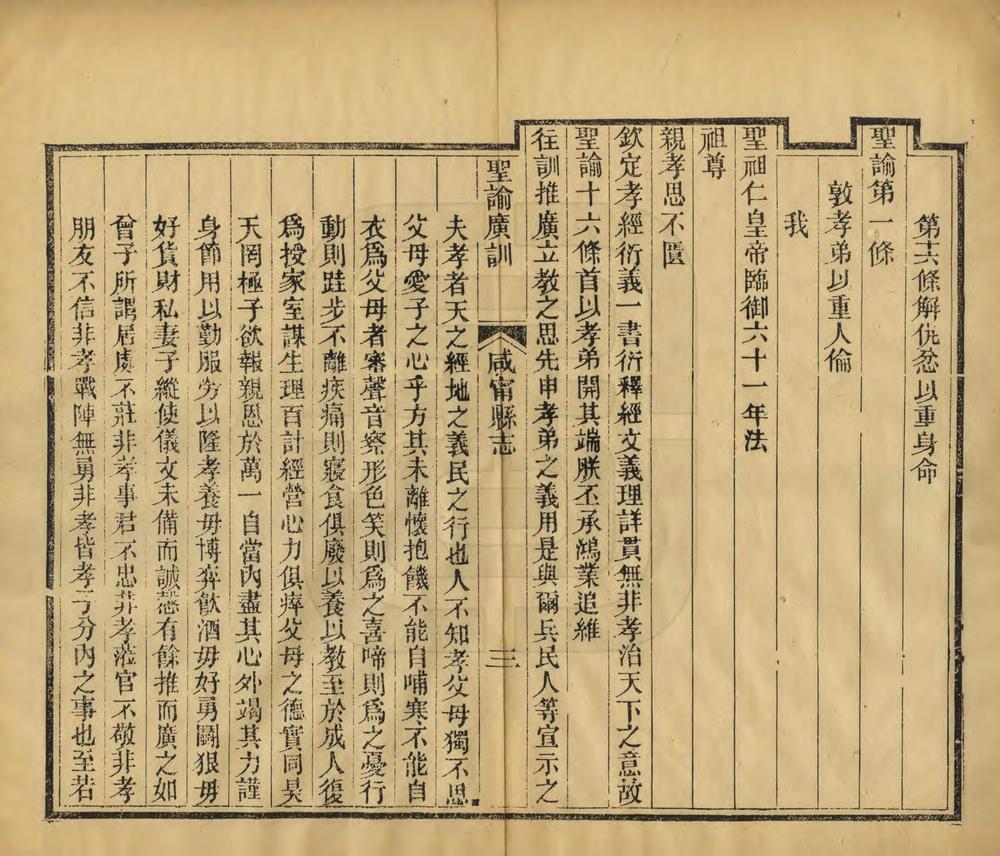 第十六條解仇忿以重身命
聖諭第一條
敦孝弟以重人倫
我
聖祖仁皇帝臨御六十一年法
祖尊
親孝思不匱
欽定孝經衍義一書衍釋經文義理詳貫無非孝治天下之意故
聖諭十六條首以孝弟開其端朕丕承鴻業追維
往訓推廣立教之思先申孝弟之義用是與爾兵民人等宣示之
聖諭廣訓
咸甯縣志
三
夫孝者天之經地之義民之行也人不知孝父母獨不思
父母愛子之心乎方其未離懷抱饑不能自哺寒不能自
衣爲父母者審聲音察形色笑則爲之喜啼則爲之憂行
動則跬步不離疾痛則寢食俱廢以養以教至於成人復
爲授家室謀生理百計經營心力俱瘁父母之德實同昊
天罔極子欲報親恩於萬一自當內盡其心外竭其力謹
身節用以勤服勞以隆孝養毋博弈飲酒毋好勇鬬狠毋
好貨財私妻子縱使儀文未備而誠慤有餘推而廣之如
曾子所謂居處不莊非孝事君不忠非孝涖官不敬非孝
朋友不信非孝戰陣無勇非孝皆孝子分內之事也至若